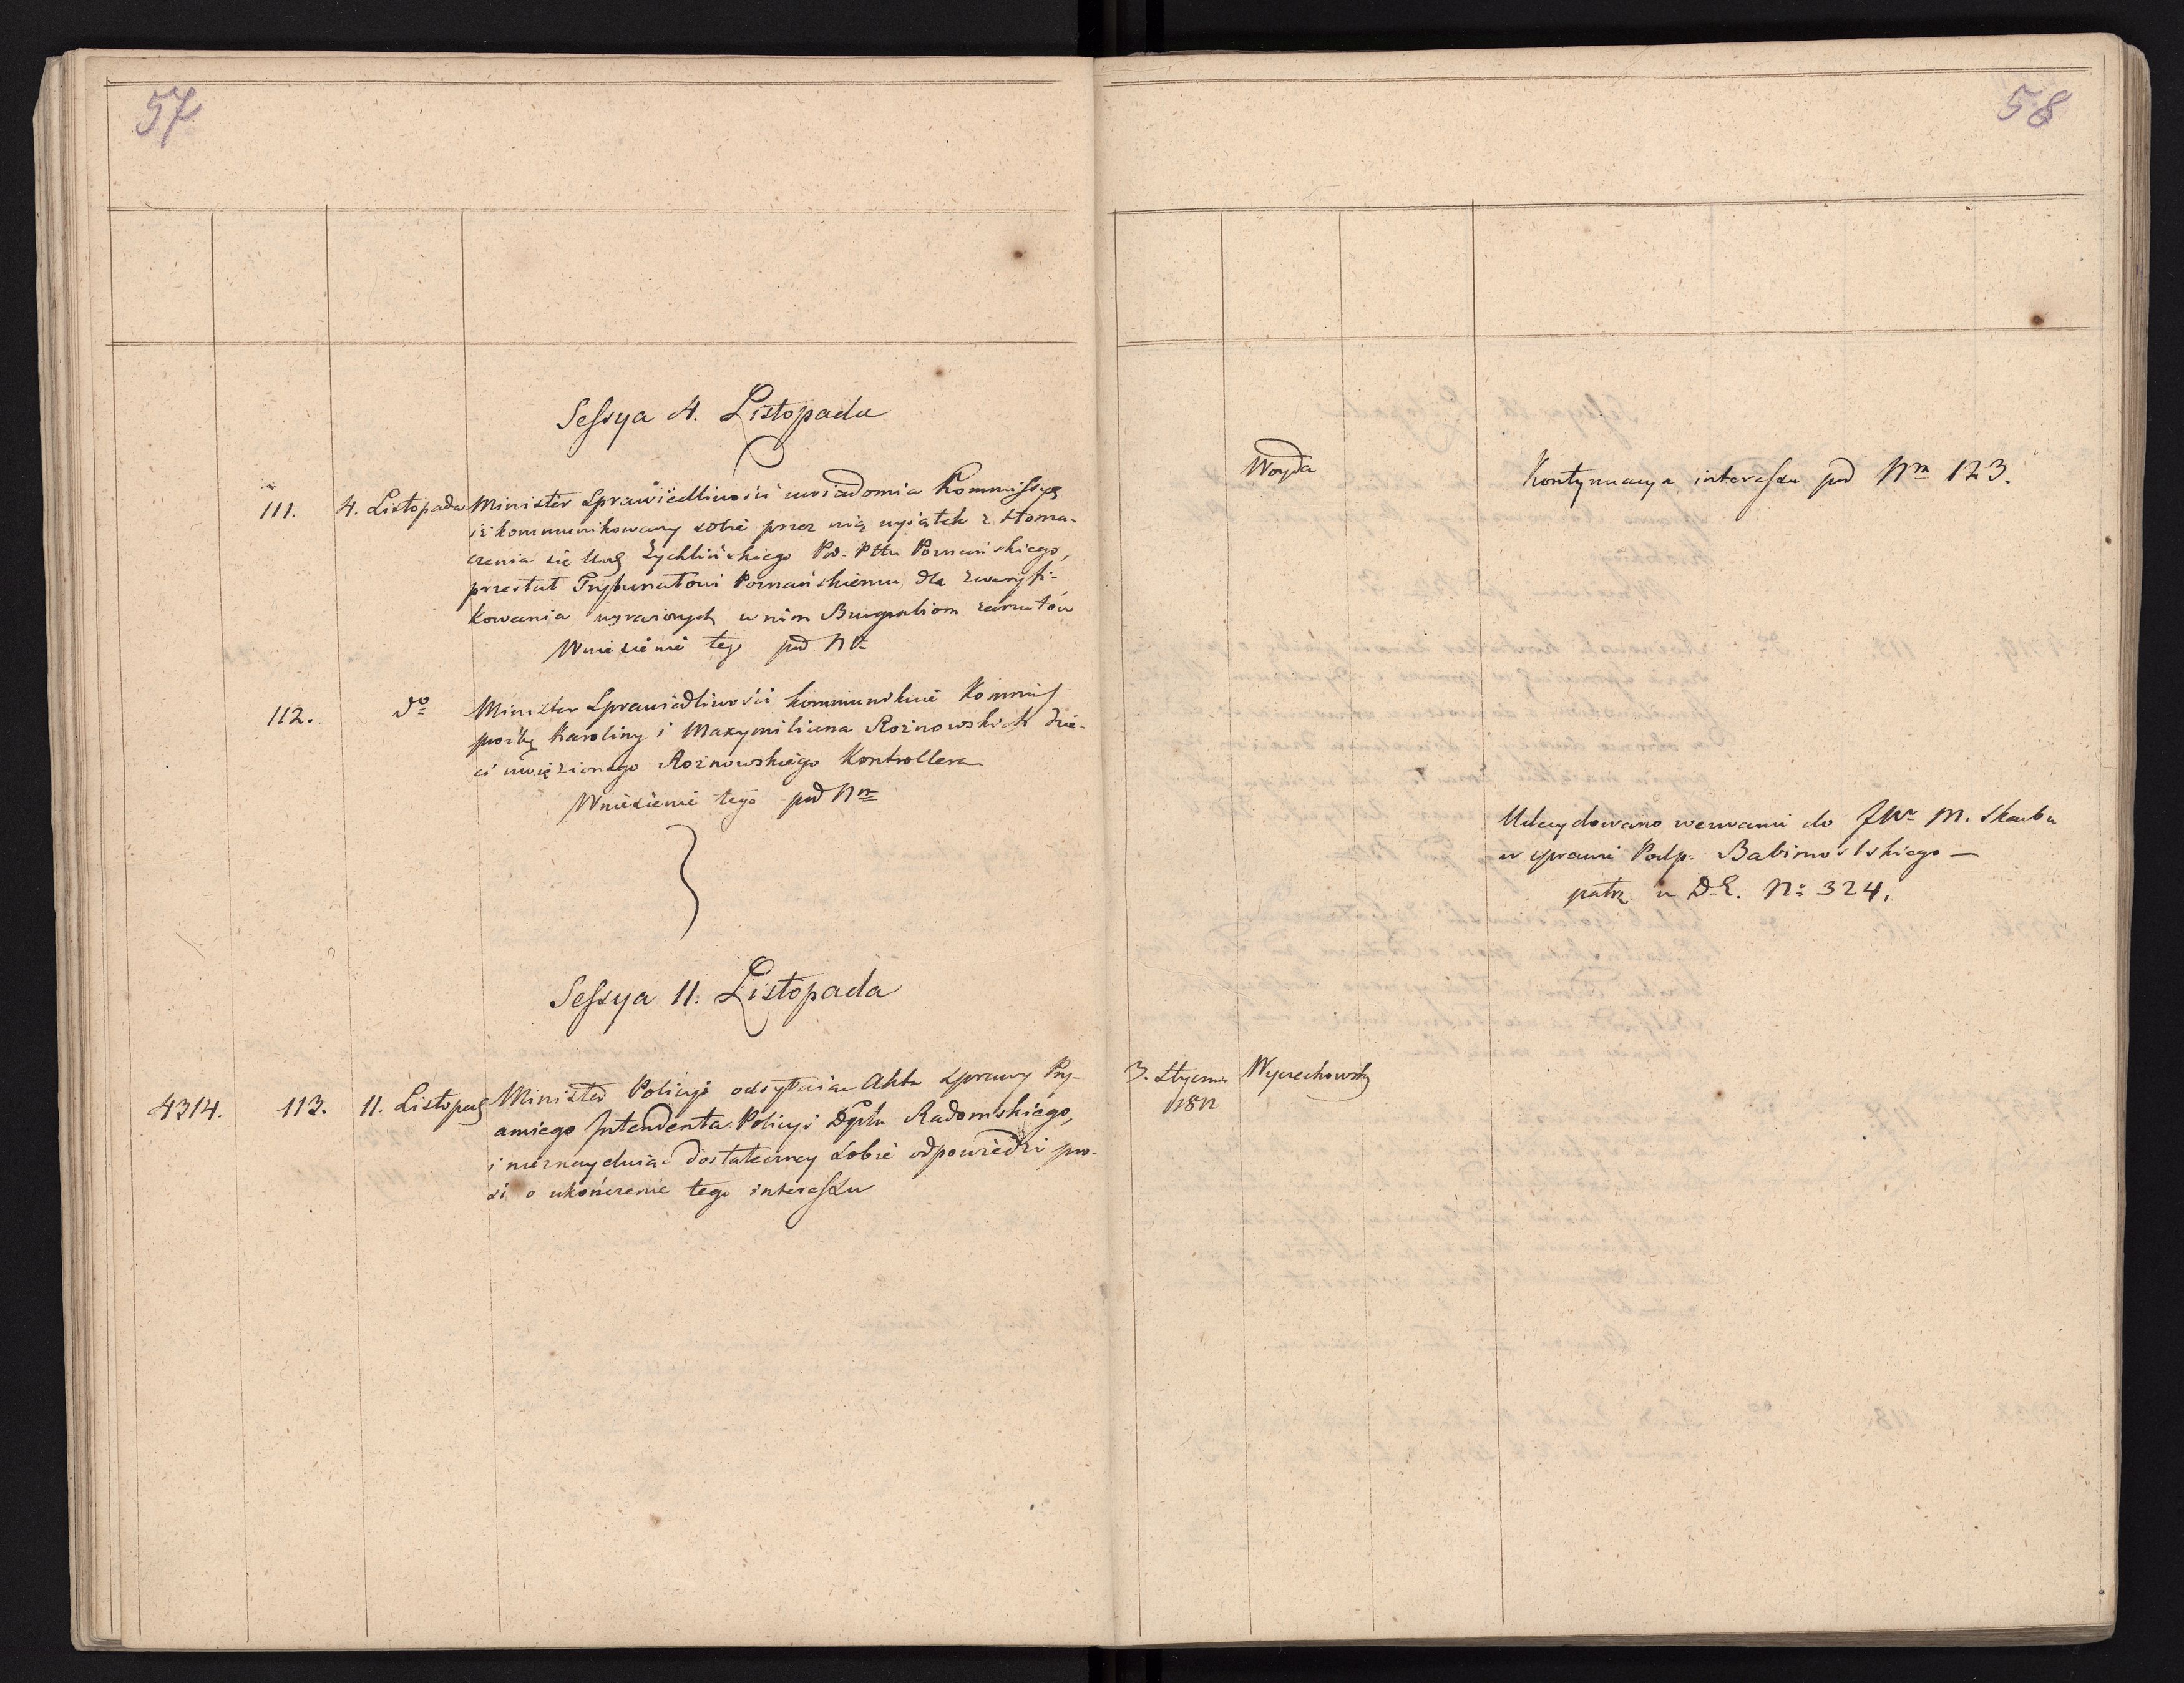 57
Sessya 4. Listopada
111. 4. Listopada Minister Sprawiedliwości uwiadomia Kommissyą
iż kommunikowany sobie przez nią wyiątek z tłoma-
czenia się Żychlińskiego Pod. Pttu Poznańskiego,
przesłał Trybunałowi Poznańskiemu dla zweryfi-
kowania wyrażonych w nim zarzutów
Wniesienie tego pod Nr
112. do Minister Sprawiedliwości kommunikuie Kommiss
proźbę Karoliny i Maxymiliana Rożnowskich dzie-
ci uwięzionego Rożnowskiego Kontrollera
Wniesienie tego pod Nrm
Sessya 11. Listopada
4314. 113. 11. Listopad Minister Policyi odsyłaiąc Akta sprawy Pry-
amiego Intendenta Policyi Dptu Radomskiego,
i nieznayduiąc dostateczney sobie odpowiedzi pro-
si o ukończenie tego interessu
58
Woyda Kontynuacya interessu pod Nrm 123.
Udecydowano wezwanie do JWo M. Skarbu
w sprawie Podp. Babimostskiego —
patrz w D.E. No 324.
3. Stycznia Wyczechowski
1812